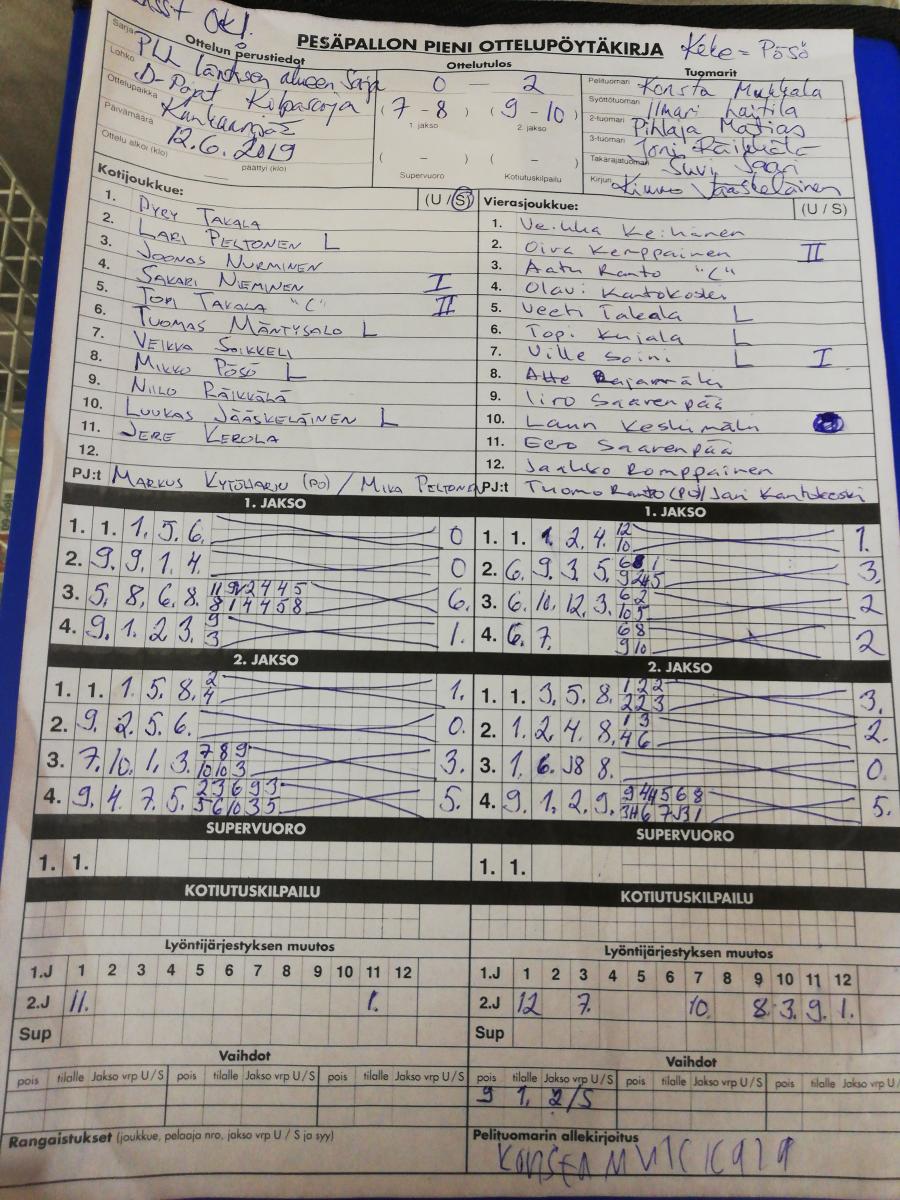 OK!
PESÄPALLON PIENI OTTELUPÖYTÄKIRJA
Keke = Pösö
Ottelun perustiedot
Ottelutulos
Tuomarit
Sarja
Lohko
Ottelupaikka
Päivämäärä
Ottelu alkoi (klo)
päättyi (klo)
PLL Läntisen alueen Sarja
D-Pojat Kilpasarja
Kankaanpää
12.6.2019
0 — 2
( 7 - 8 ) ( 9 - 10 )
1. jakso 2. jakso
( - ) ( - )
Supervuoro Kotiutuskilpailu
Pelituomari Konsta Muhkala
Syöttötuomari Ilmari Laitila
2-tuomari Pihlaja Matias
3-tuomari Joni Räikkälä
Takarajatuomari Suvi Saari
Kirjuri Kimmo Jääskeläinen
Kotijoukkue: (U / S)
1. Pyry Takala
2. Lari Peltonen L
3. Joonas Nurminen
4. Sakari Nieminen I
5. Topi Takala "C" II
6. Tuomas Mäntysalo L
7. Veikka Soikkeli
8. Mikko Pösö L
9. Niilo Räikkälä
10. Luukas Jääskeläinen L
11. Jere Kerola
12.
PJ:t Markus Kytöharju (PO) / Mika Peltonen
Vierasjoukkue: (U / S)
1. Veikka Keihänen
2. Oiva Kemppainen II
3. Aatu Ranto "C"
4. Olavi Kantokoski
5. Veeti Takala L
6. Topi Kujala L
7. Ville Soini L I
8. Atte Rajamäki
9. Iiro Saarenpää
10. Lauri Keskimäki
11. Eero Saarenpää
12. Jaakko Romppainen
PJ:t Tuomo Ranto (PO) / Jari Kantokoski
1. JAKSO
1. 1. 1. 5. 6. 0
2. 9. 9. 1. 4. 0
3. 5. 8. 6. 8. 6.
4. 9. 1. 2 3. 9 3 1.
1. JAKSO
1. 1. 1. 2. 4. 12 10 1.
2. 6. 9. 3. 5. 3.
3. 6. 10. 12. 3. 6 2 10 5 2
4. 6. 7. 6 8 9 10 2
2. JAKSO
1. 1. 1. 5. 8. 2 4 1.
2. 9. 2. 5. 6. 0.
3. 7. 10. 1. 3. 7 8 9 10 10 3 3.
4. 9. 4. 7. 5. 2 3 6 9 3 5 6 10 3 5 5.
2. JAKSO
1. 1. 3. 5. 8. 1 2 2 2 2 3 3.
2. 1. 2. 4. 8. 1 3 4 6 2.
3. 1. 6. J8 8. 0.
4. 9. 1. 2. 9. 5.
SUPERVUORO
1. 1.
SUPERVUORO
1. 1.
KOTIUTUSKILPAILU
KOTIUTUSKILPAILU
Lyöntijärjestyksen muutos
1.J 1 2 3 4 5 6 7 8 9 10 11 12
2.J 11. 1.
Sup
Lyöntijärjestyksen muutos
1.J 1 2 3 4 5 6 7 8 9 10 11 12
2.J 12 7. 10. 8. 3. 9. 1.
Sup
Vaihdot
pois tilalle Jakso vrp U / S pois tilalle Jakso vrp U / S pois tilalle Jakso vrp U / S
Vaihdot
pois tilalle Jakso vrp U / S pois tilalle Jakso vrp U / S pois tilalle Jakso vrp U /
9 1. 2/S
Rangaistukset (joukkue, pelaaja nro, jakso vrp U / S ja syy)
Pelituomarin allekirjoitus